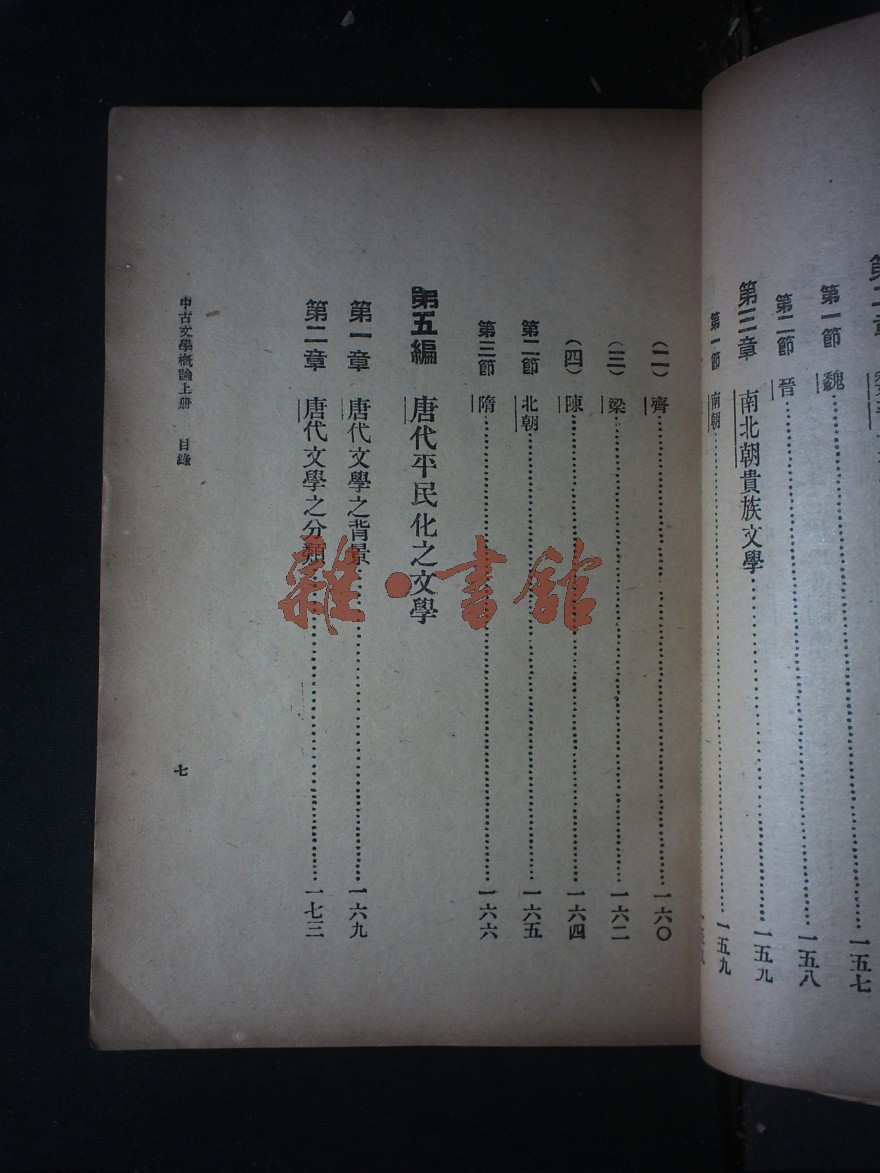 第一節 魏……一五七
第二節 晉……一五八
第三章 南北朝貴族文學……一五九
第一節 南朝……一五九
(二) 齊……一六〇
(三) 梁……一六二
(四) 陳……一六四
第二節 北朝……一六五
第三節 隋……一六六
第五編 唐代平民化之文學
第一章 唐代文學之背景……一六九
第二章 唐代文學之分類……一七三
中古文學概論上册 目錄 七
雜·書館